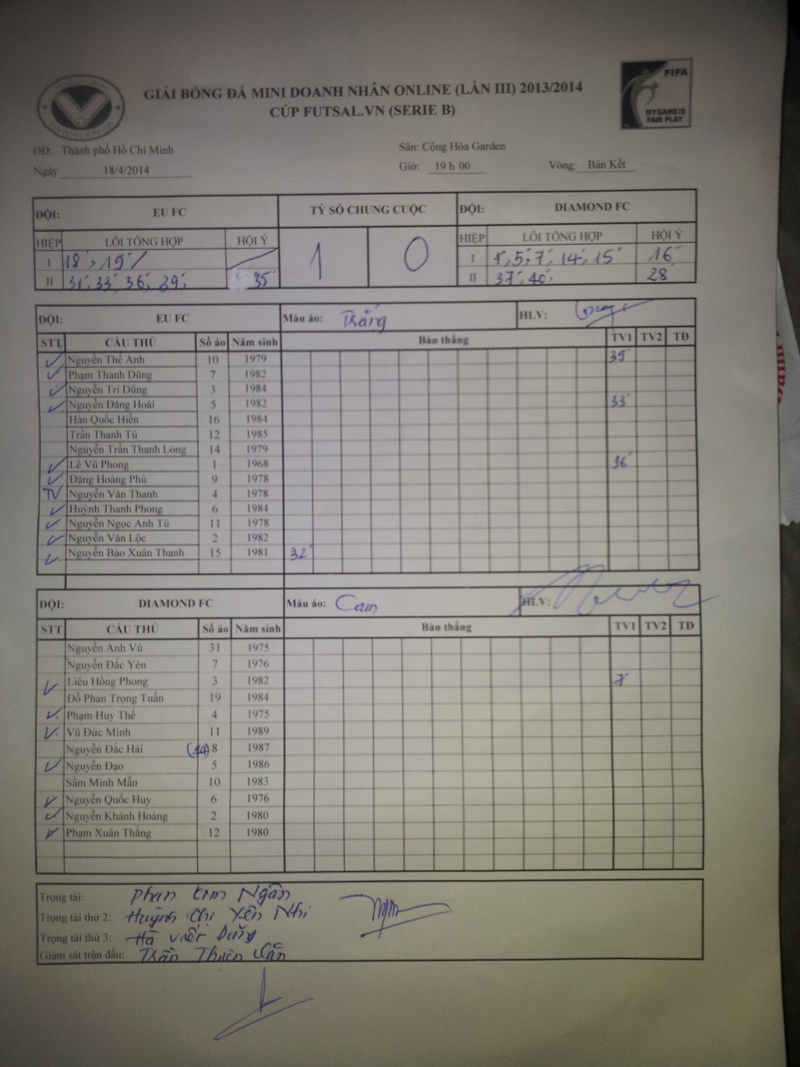 GIẢI BÓNG ĐÁ MINI DOANH NHÂN ONLINE (LẦN III) 2013/2014
CÚP FUTSAL.VN (SERIE B)
FIFA
MY GAME IS
FAIR PLAY
DĐ: Thành phố Hồ Chí Minh Sân: Cộng Hòa Garden
Ngày 18/4/2014 Giờ: 19 h 00 Vòng: Bán Kết
ĐỘI: EU FC TỶ SỐ CHUNG CUỘC ĐỘI: DIAMOND FC
HIỆP LỖI TỔNG HỢP HỘI Ý 1 0 HIỆP LỖI TỔNG HỢP HỘI Ý
I 18', 19' I 5', 7', 14', 15' 16'
II 31', 33', 36', 39', 35' II 37', 40' 28'
ĐỘI: EU FC Màu áo: Trắng HLV:
STT CẦU THỦ Số áo Năm sinh Bàn thắng TV1 TV2 TĐ
Nguyễn Thế Anh 10 1979
Phạm Thanh Dũng 7 1982
Nguyễn Trí Dũng 3 1984
Nguyễn Đăng Hoài 5 1982 33'
Hàn Quốc Hiền 16 1984
Trần Thanh Tú 12 1985
Nguyễn Trần Thanh Long 14 1979
Lê Vũ Phong 1 1968 36'
Đặng Hoàng Phú 9 1978
TV Nguyễn Văn Thanh 4 1978
Huỳnh Thanh Phong 6 1984
Nguyễn Ngọc Anh Tú 11 1978
Nguyễn Văn Lộc 2 1982
Nguyễn Bảo Xuân Thanh 15 1981 32'
ĐỘI: DIAMOND FC Màu áo: Cam HLV:
STT CẦU THỦ Số áo Năm sinh Bàn thắng TV1 TV2 TĐ
Nguyễn Anh Vũ 31 1975
Nguyễn Đắc Yên 7 1976
Liêu Hồng Phong 3 1982 7'
Đỗ Phan Trọng Tuấn 19 1984
Phạm Huy Thế 4 1975
Vũ Đức Minh 11 1989
Nguyễn Đắc Hải 8 1987
Nguyễn Đạo 5 1986
Sầm Minh Mẫn 10 1983
Nguyễn Quốc Huy 6 1976
Nguyễn Khánh Hoàng 2 1980
Phạm Xuân Thắng 12 1980
Trọng tài: Phan Kim Ngân
Trọng tài thứ 2: Huỳnh Chị Yên Nhi
Trọng tài thứ 3: Hà Viết Dũng
Giám sát trận đấu: Trần Thiên